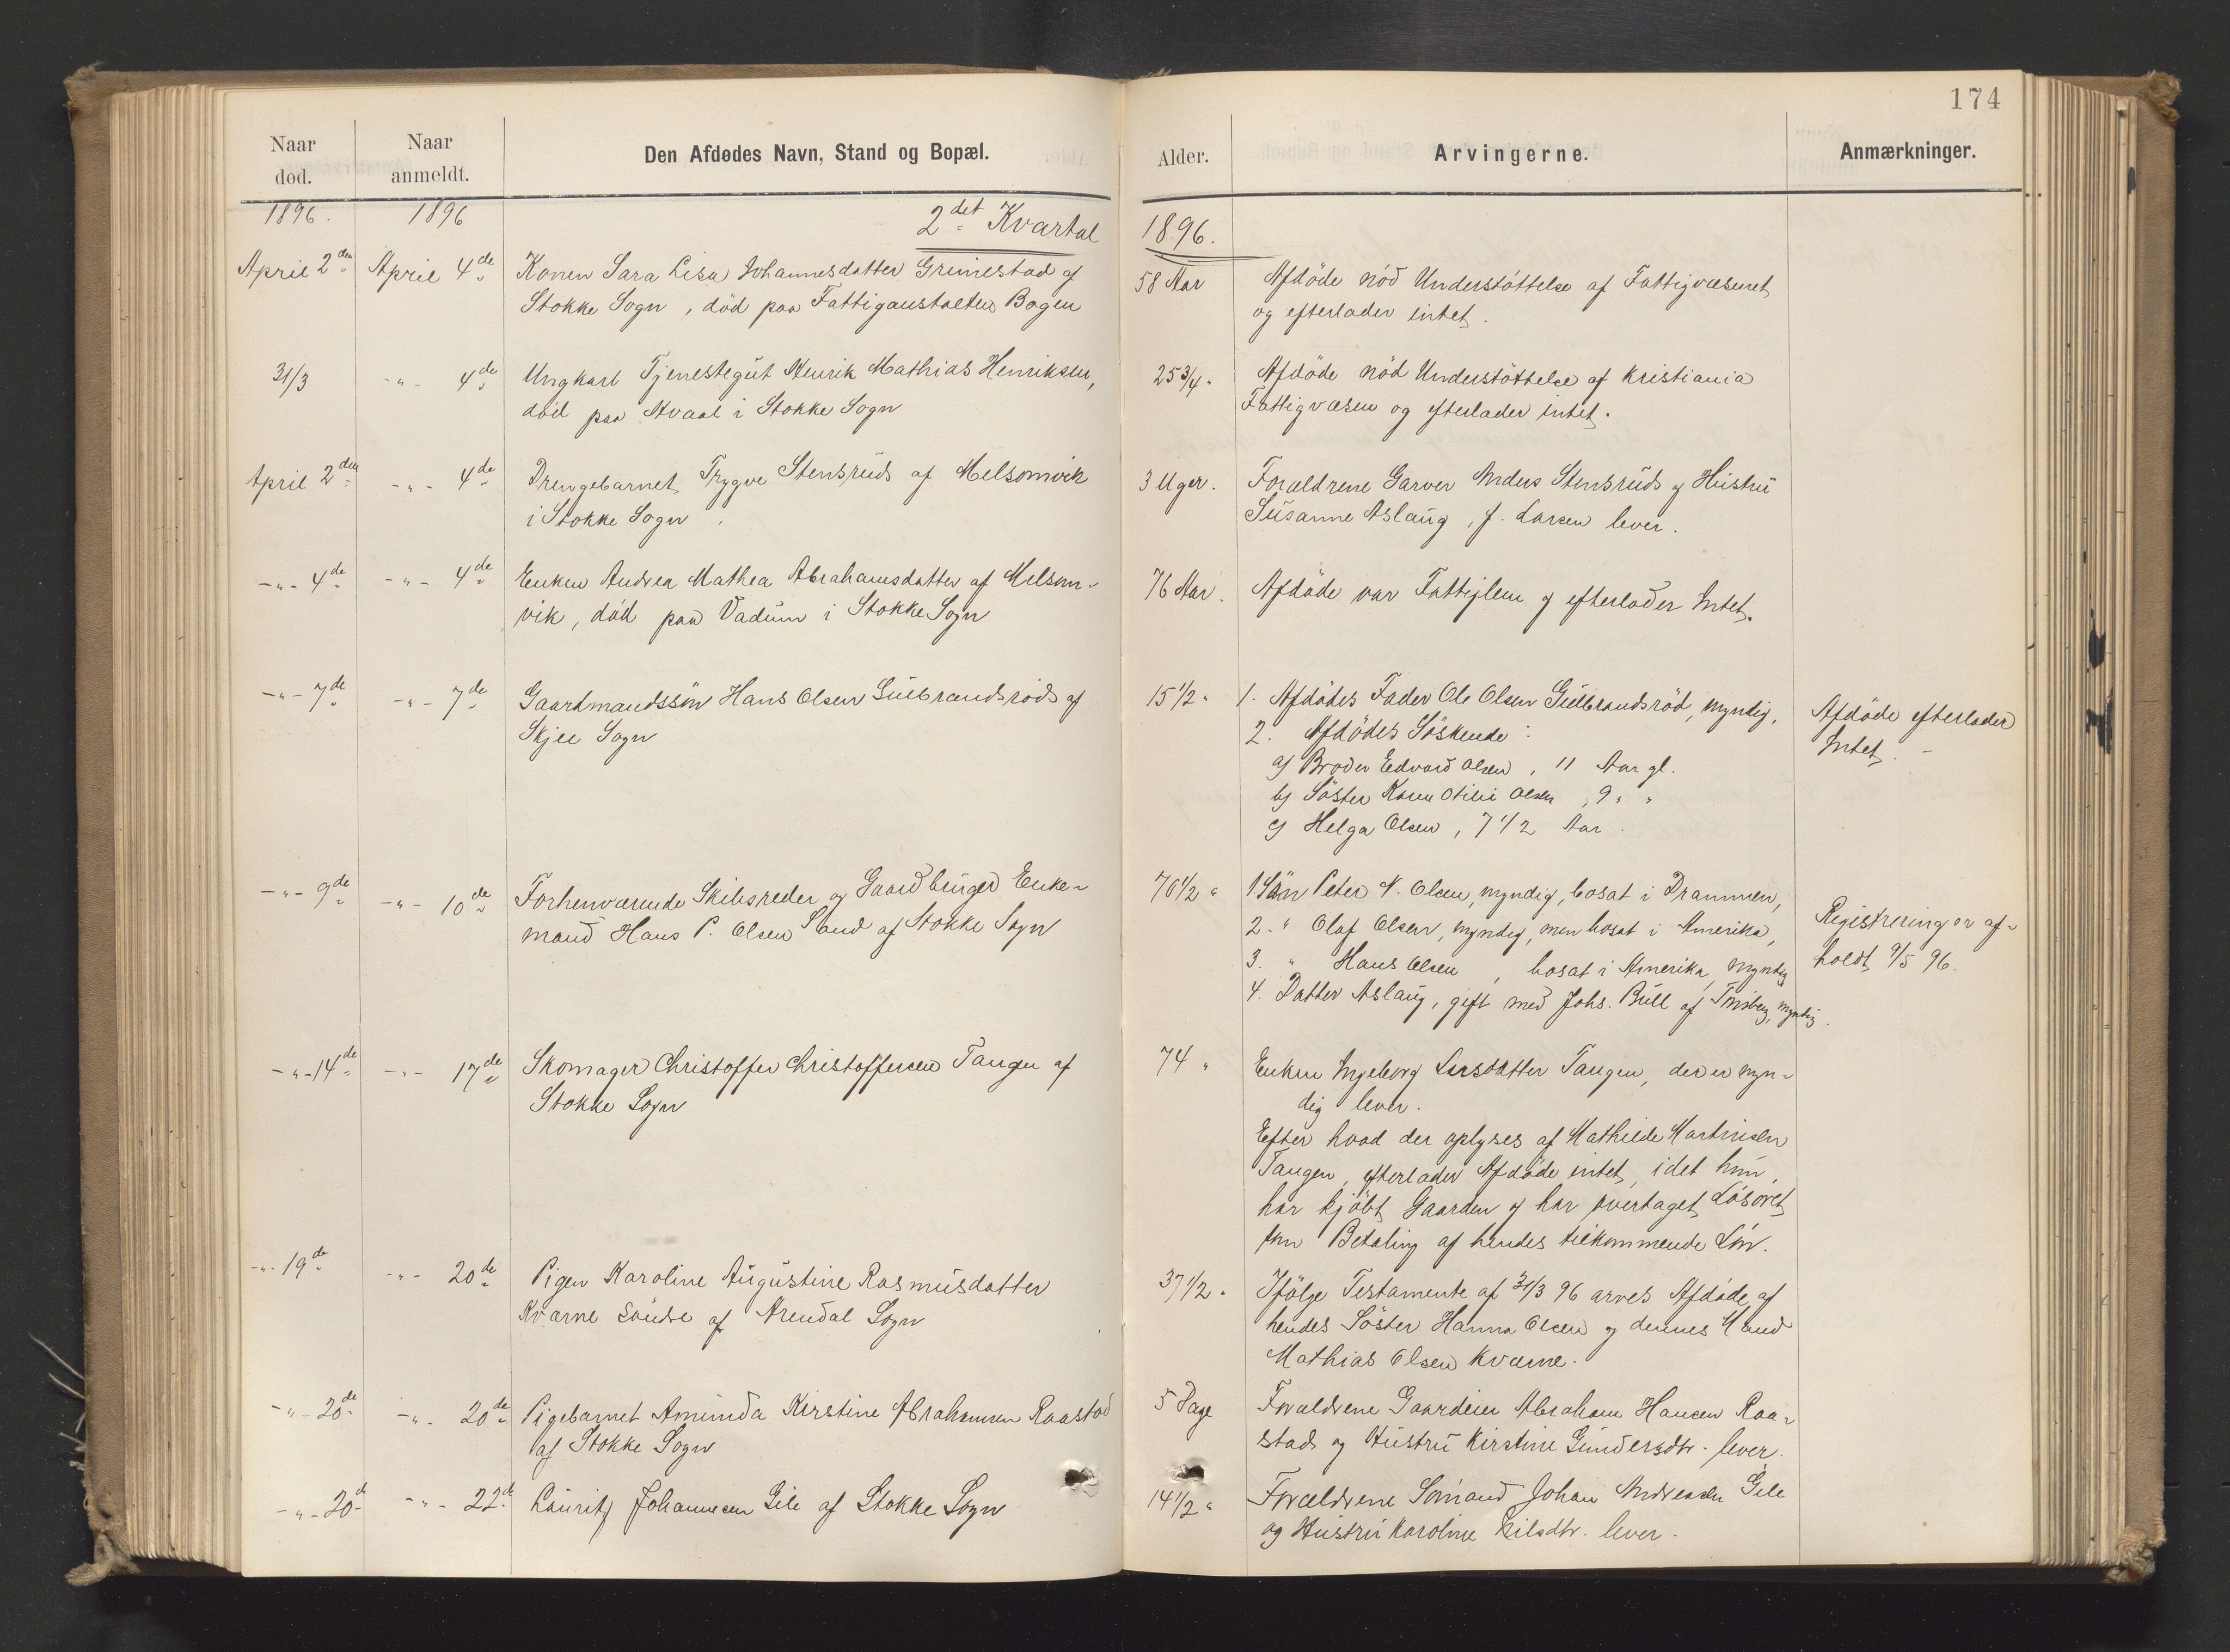 174
Naar død.
Naar anmeldt.
Den Afdødes Navn, Stand og Bopæl.
Alder.
Arvingerne.
Anmærkninger.
1896. 1896 2det Kvartal 1896.
April 2den April 4de Konen Sara Lisa Johannesdatter Grimestad af
Stokke Sogn, död paa Fattiganstalten Bogen
58 Aar Afdöde nöd Understöttelse af Fattigvæsenet
og efterlader intet.
31/3 -"- 4de Ungkarl Tjenestegut Henrik Mathias Henriksen,
död paa Hvaal i Stokke Sogn
25 3/4 " Afdöde nöd Understöttelse af Kristiania
Fattigvæsen og efterlader intet.
April 2den -"- 4de Drengebarnet Trygve Stensrud af Melsomvik
i Stokke Sogn.
3 Uger. Forældrene Garver Anders Stensrud og Hustru
Susanne Aslaug, f. Larsen lever.
-"- 4de -"- 4de Enken Andrea Mathea Abrahamsdatter af Melsom-
vik, död paa Vadum i Stokke Sogn
76 Aar. Afdöde var Fattiglem og efterlader Intet.
-"- 7de -"- 7de Gaardmandssön Hans Olsen Gulbrandsröd af
Skjee Sogn
15 1/2 " 1. Afdödes Fader Ole Olsen Gulbrandsröd, myndig,
2. Afdödes Söskende:
a) Broder Edvard Olsen, 11 Aar gl.
b) Söster Karen Otilie Olsen, 9 " "
c) Helga Olsen, 7 1/2 Aar.
Afdöde efterlader
Intet. -
-"- 9de -"- 10de Forhenværende Skibsreder og Gaardbruger Enke-
mand Hans P. Olsen Sand af Stokke Sogn
76 1/2 " 1 Sön Peter N. Olsen, myndig, bosat i Drammen,
2. " Olaf Olsen, myndig, men bosat i Amerika,
3. " Hans Olsen, bosat i Amerika, myndig
4. Datter Aslaug, gift med Johs. Bull af Tönsberg, myndig.
Registrering er af-
holdt 9/5 96.
-"- 14de -"- 17de Skomager Christoffer Christoffersen Tangen af
Stokke Sogn
74 " Enken Ingeborg Larsdatter Tangen, der er myn-
dig lever.
Efter hvad der oplyses af Mathilde Martinsen
Tangen, efterlader Afdöde intet, idet hun
har kjöbt Gaarden og har overtaget Lösöret
som Betaling af hendes tilkommende Lön.
-"- 19de -"- 20de Pigen Karoline Augustine Rasmusdatter
Kvarne söndre af Arendal Sogn
37 1/2 " Ifölge Testamente af 31/3 96 arves Afdöde af
hendes Söster Hanna Olsen og dennes Mand
Mathias Olsen Kvarne.
-"- 20de -"- 20de Pigebarnet Aminda Kirstine Abrahamsen Raastad
af Stokke Sogn
5 Dage Forældrene Gaardeier Abraham Hansen Raa-
stad og Hustru Kirstine Gundersdtr. lever.
-"- 20de -"- 22de Lauritz Johannesen Gile af Stokke Sogn
14 1/2 " Forældrene Sömand Johan Andreasen Gile
og Hustru Karoline Nilsdtr. lever.